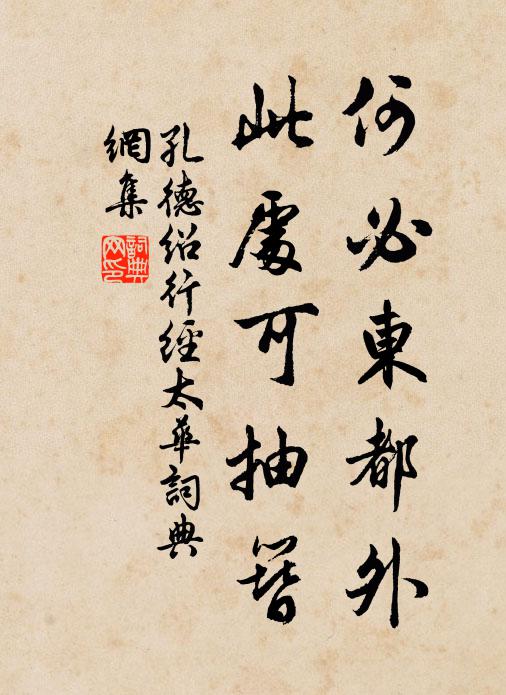 何必東都外
此處可抽簪
孔德紹行經太華詞典
網集
詞典
网印